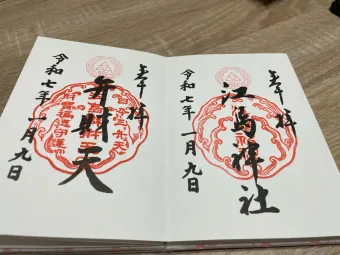 奉拝
江島神社
令和七年一月九日
奉拝
弁財天
令和七年一月九日